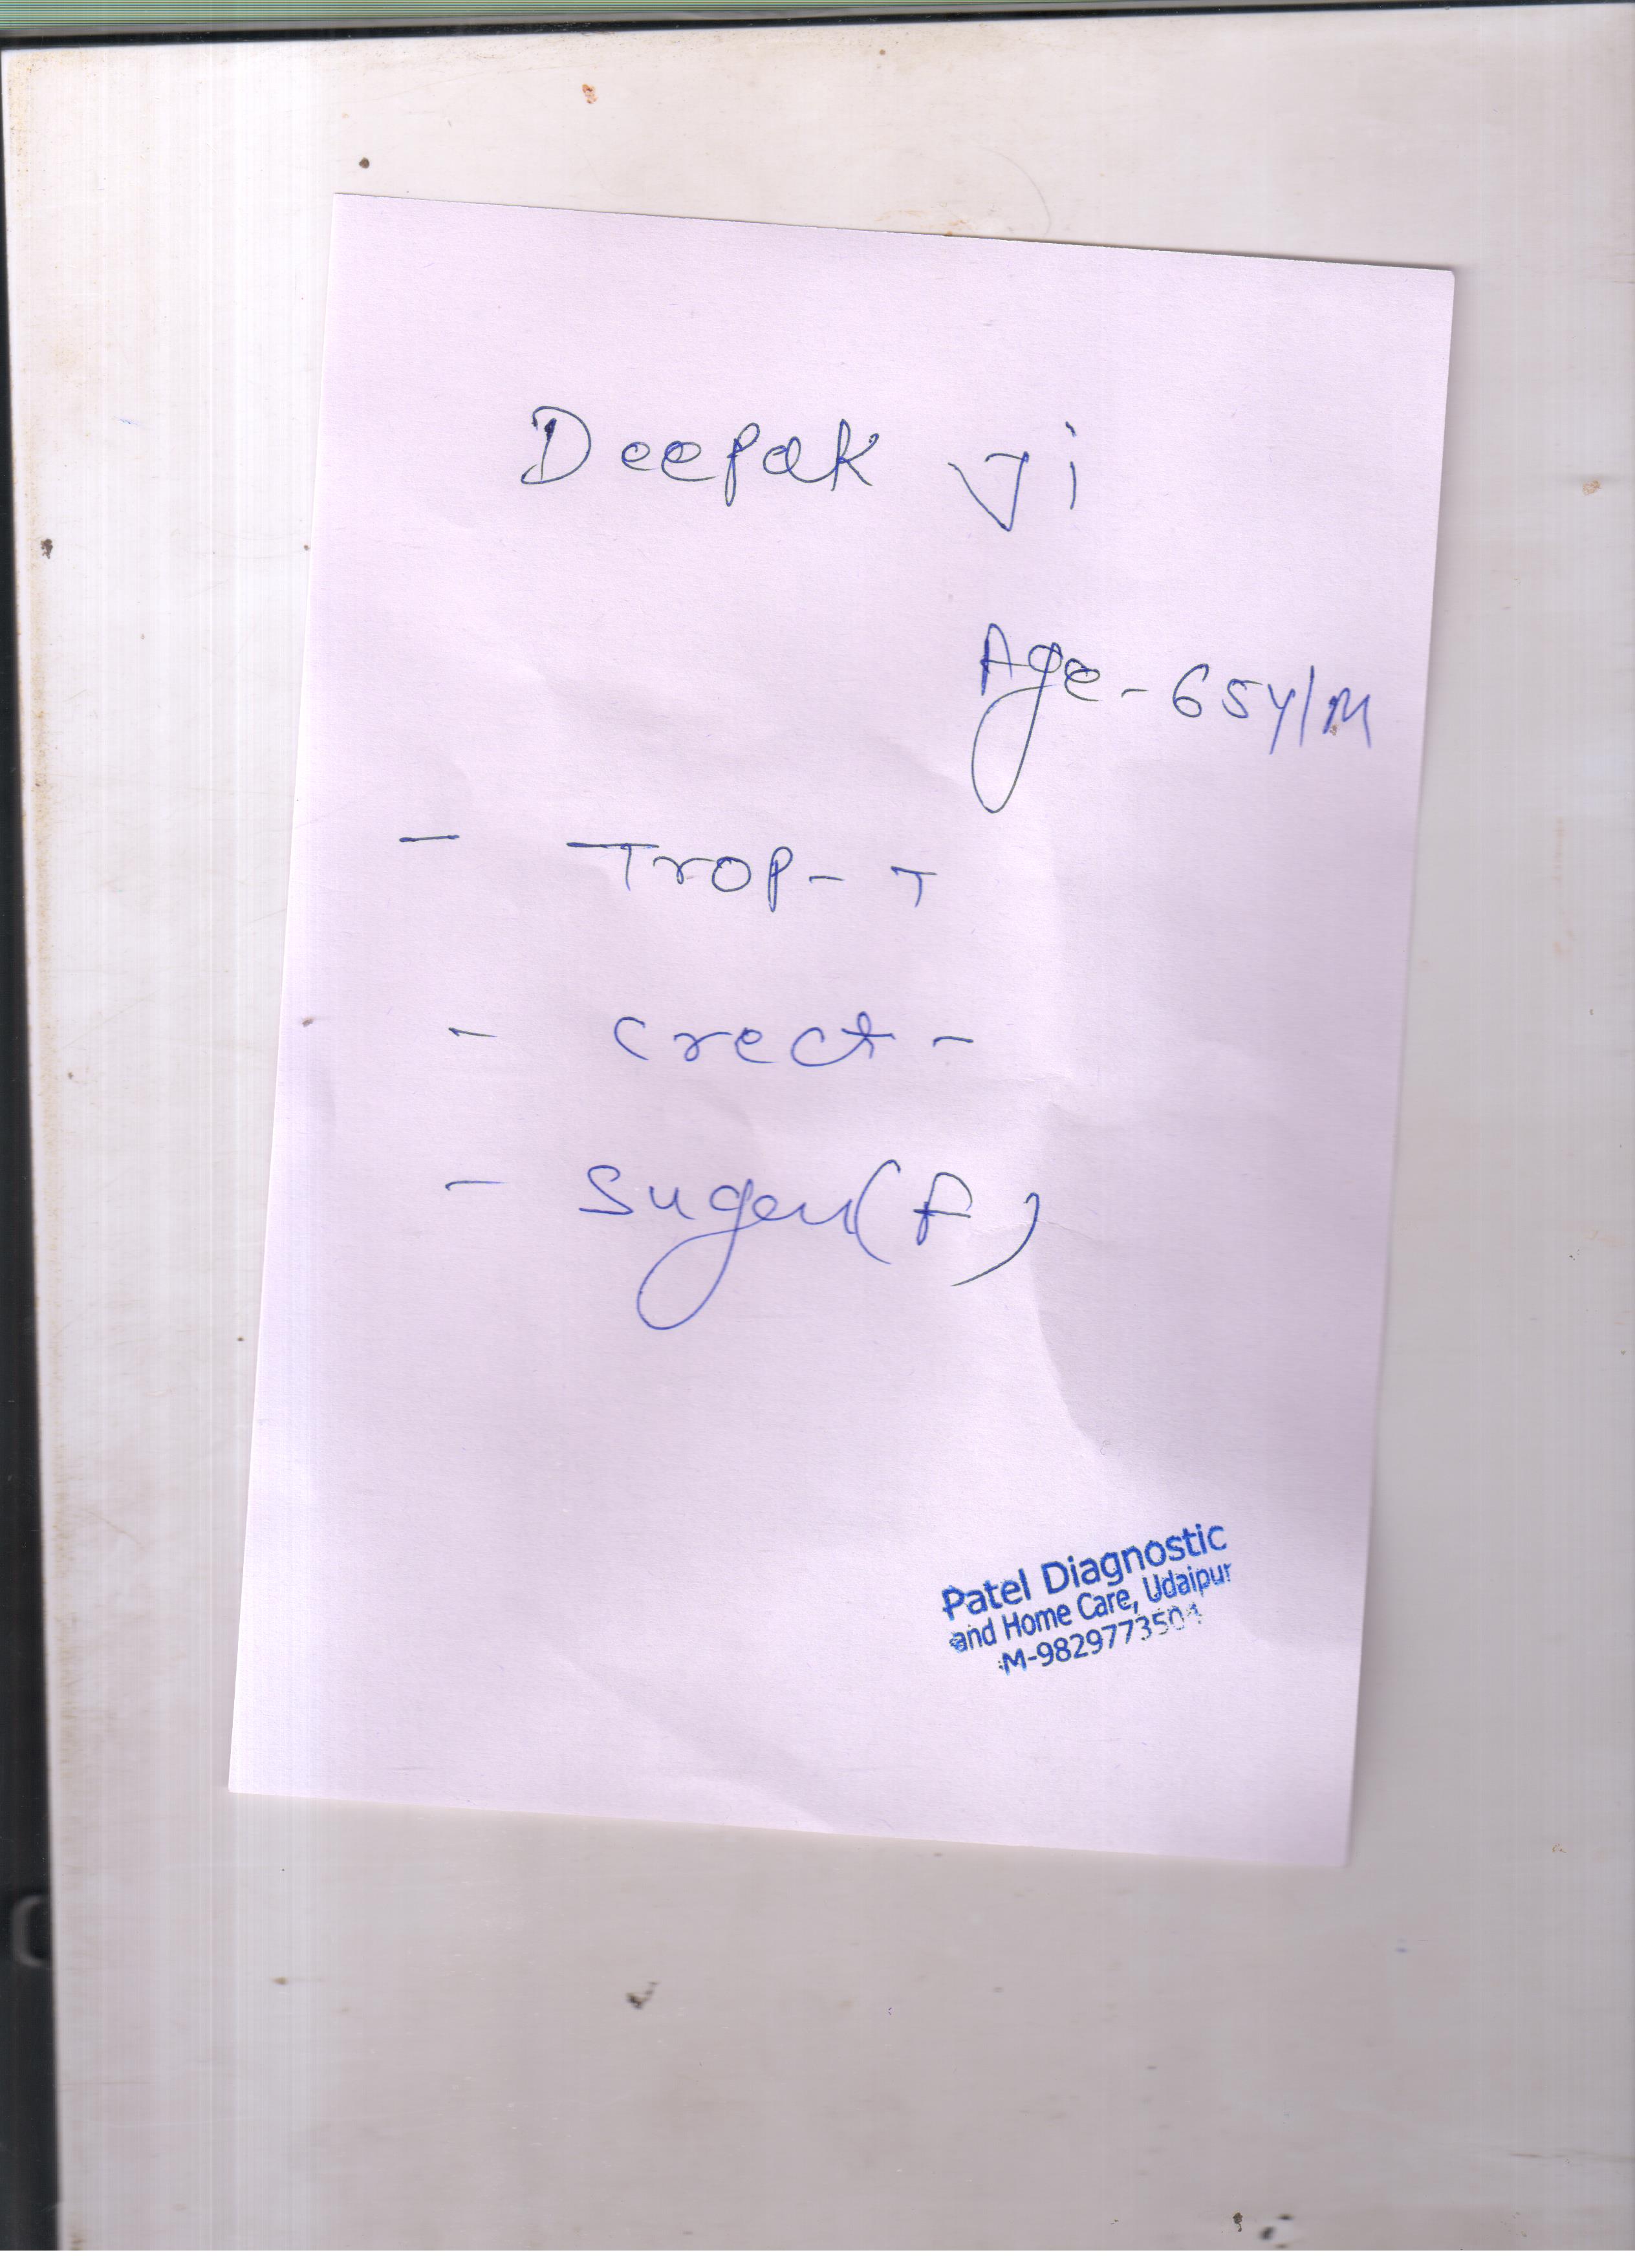 Deepak Ji
Age - 65y/M
- Trop - T
- Creat -
- Sugar (F)
Patel Diagnostic
and Home Care, Udaipur
M-9829773504